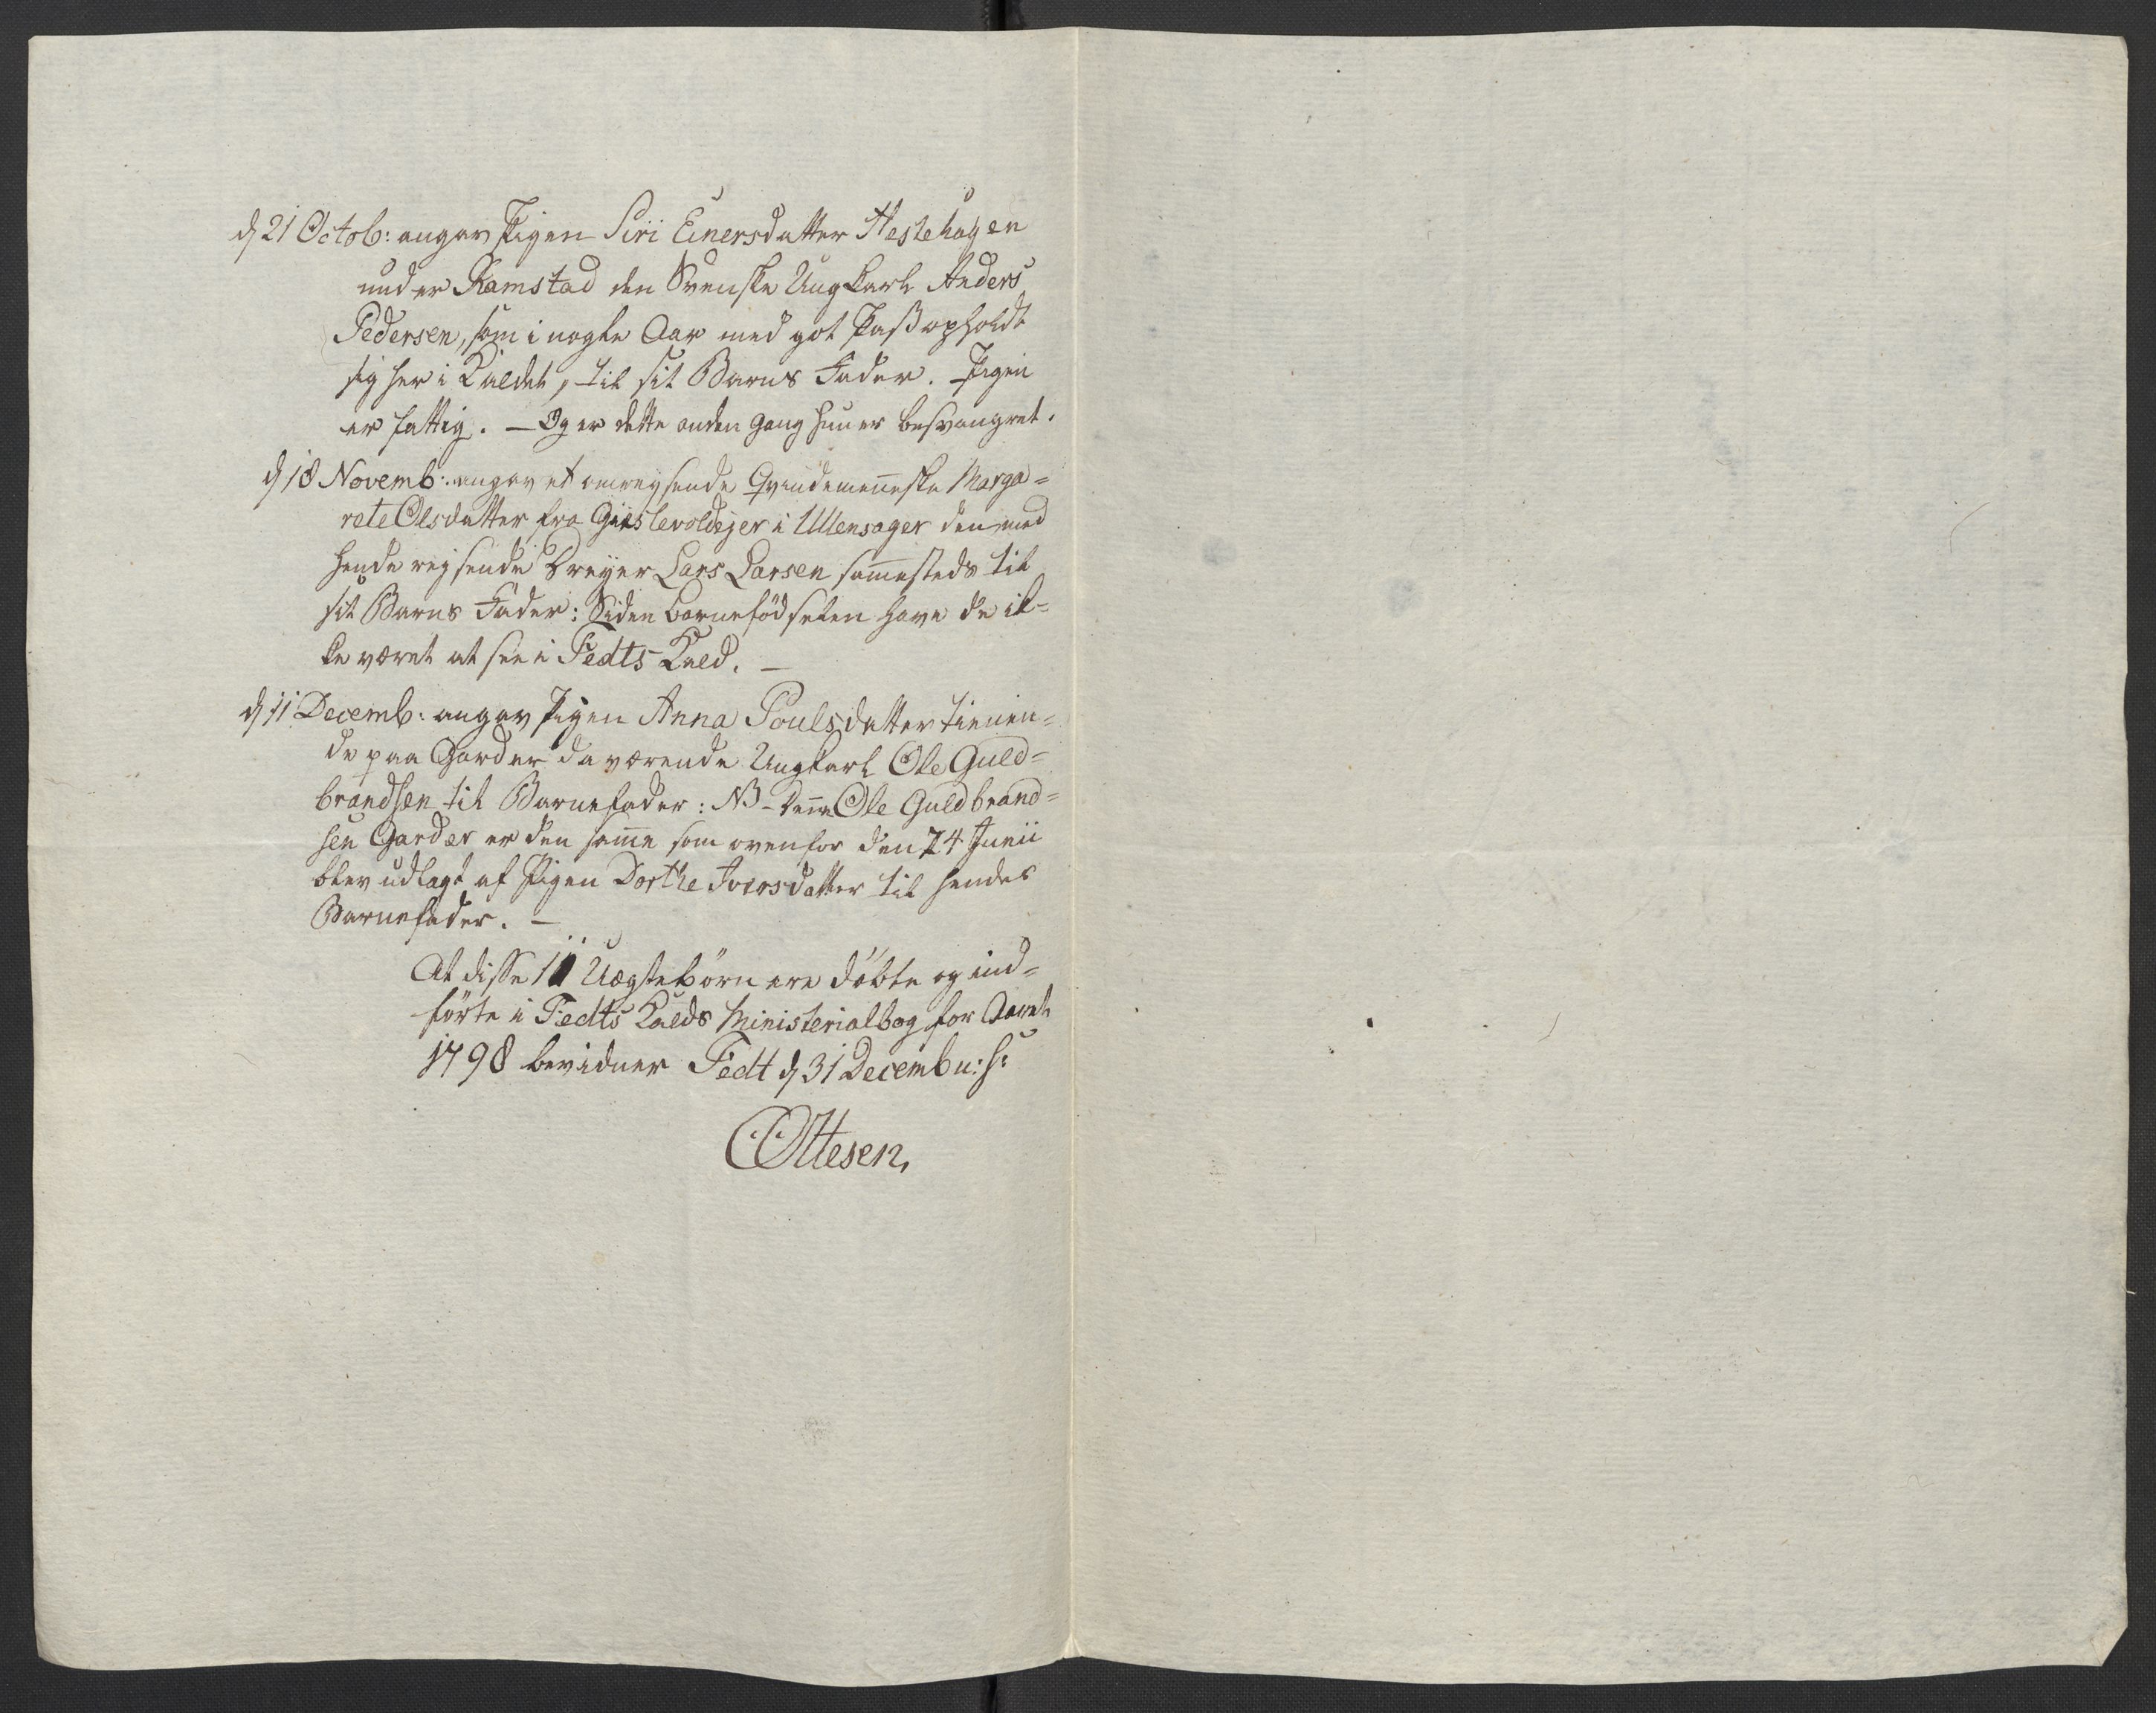 d 21 Octob: angav Pigen Siri Einersdatter Hestehagen
under Ramstad den Svenske Ungkarl Anders
Pedersen, som i nogle Aar med got Pass opholdt
sig her i Kaldet, til sit Barns Fader. Pigen
er fattig. — Og er dette anden Gang hun er besvangret.
d 18 Novemb: angav et omreysende Qvindemenneske Marga=
rete Olsdatter fra Gislevoldejer i Ullensager den med
hende reysende Dreyer Lars Larsen sammesteds til
sit Barns Fader: Siden Barnefødselen have de ik=
ke været at see i Fedts Kald. —
d 11 Decemb: angav Pigen Anna Poulsdatter tienen=
de paa Garder daværende Ungkarl Ole Guld=
brandsen til Barnefader: NB – Denne Ole Guldbrand=
sen Garder er den samme som ovenfor den 24 Junii
blev udlagt af Pigen Dorthe Iversdatter til hendes
Barnefader. —
At disse 11 Uægtebörn ere döbte og ind=
förte i Fedts Kalds Ministerialbog for Aaret
1798 bevidner Fedt d 31 Decembr: s:
COttesen,